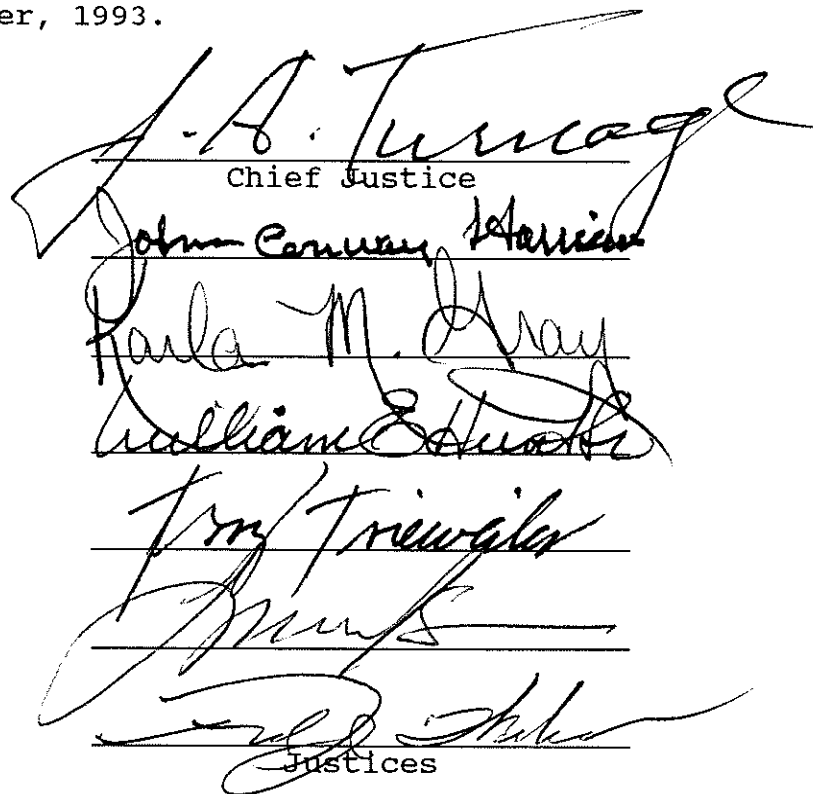 er, 1993.
J. A. Turnage
Chief Justice
John Conway Harrison
Karla M. Gray
William E Hunt Sr
Terry Trieweiler
Justices